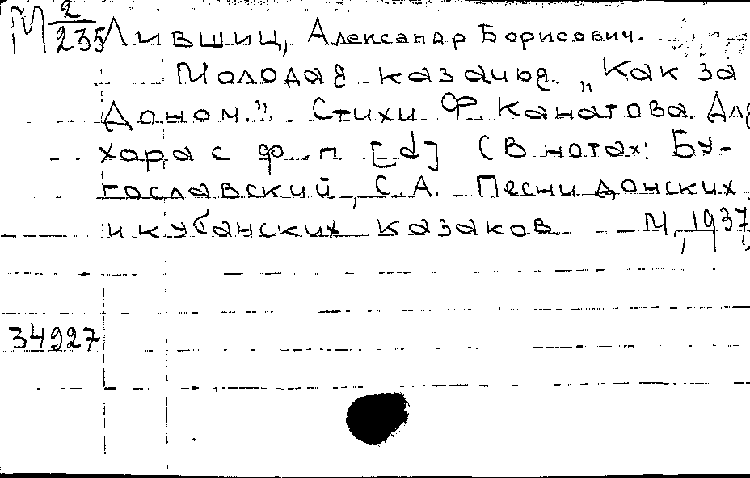 М 2/235 Лившиц, Александр Борисович.
Молодая казачья. „Как за
Доном." Стихи Ф. Канатова. Для
хора с ф.-п. [d] (В нотах: Бу-
гославский, С.А. Песни донских
и кубанских казаков М., 1937,
34927